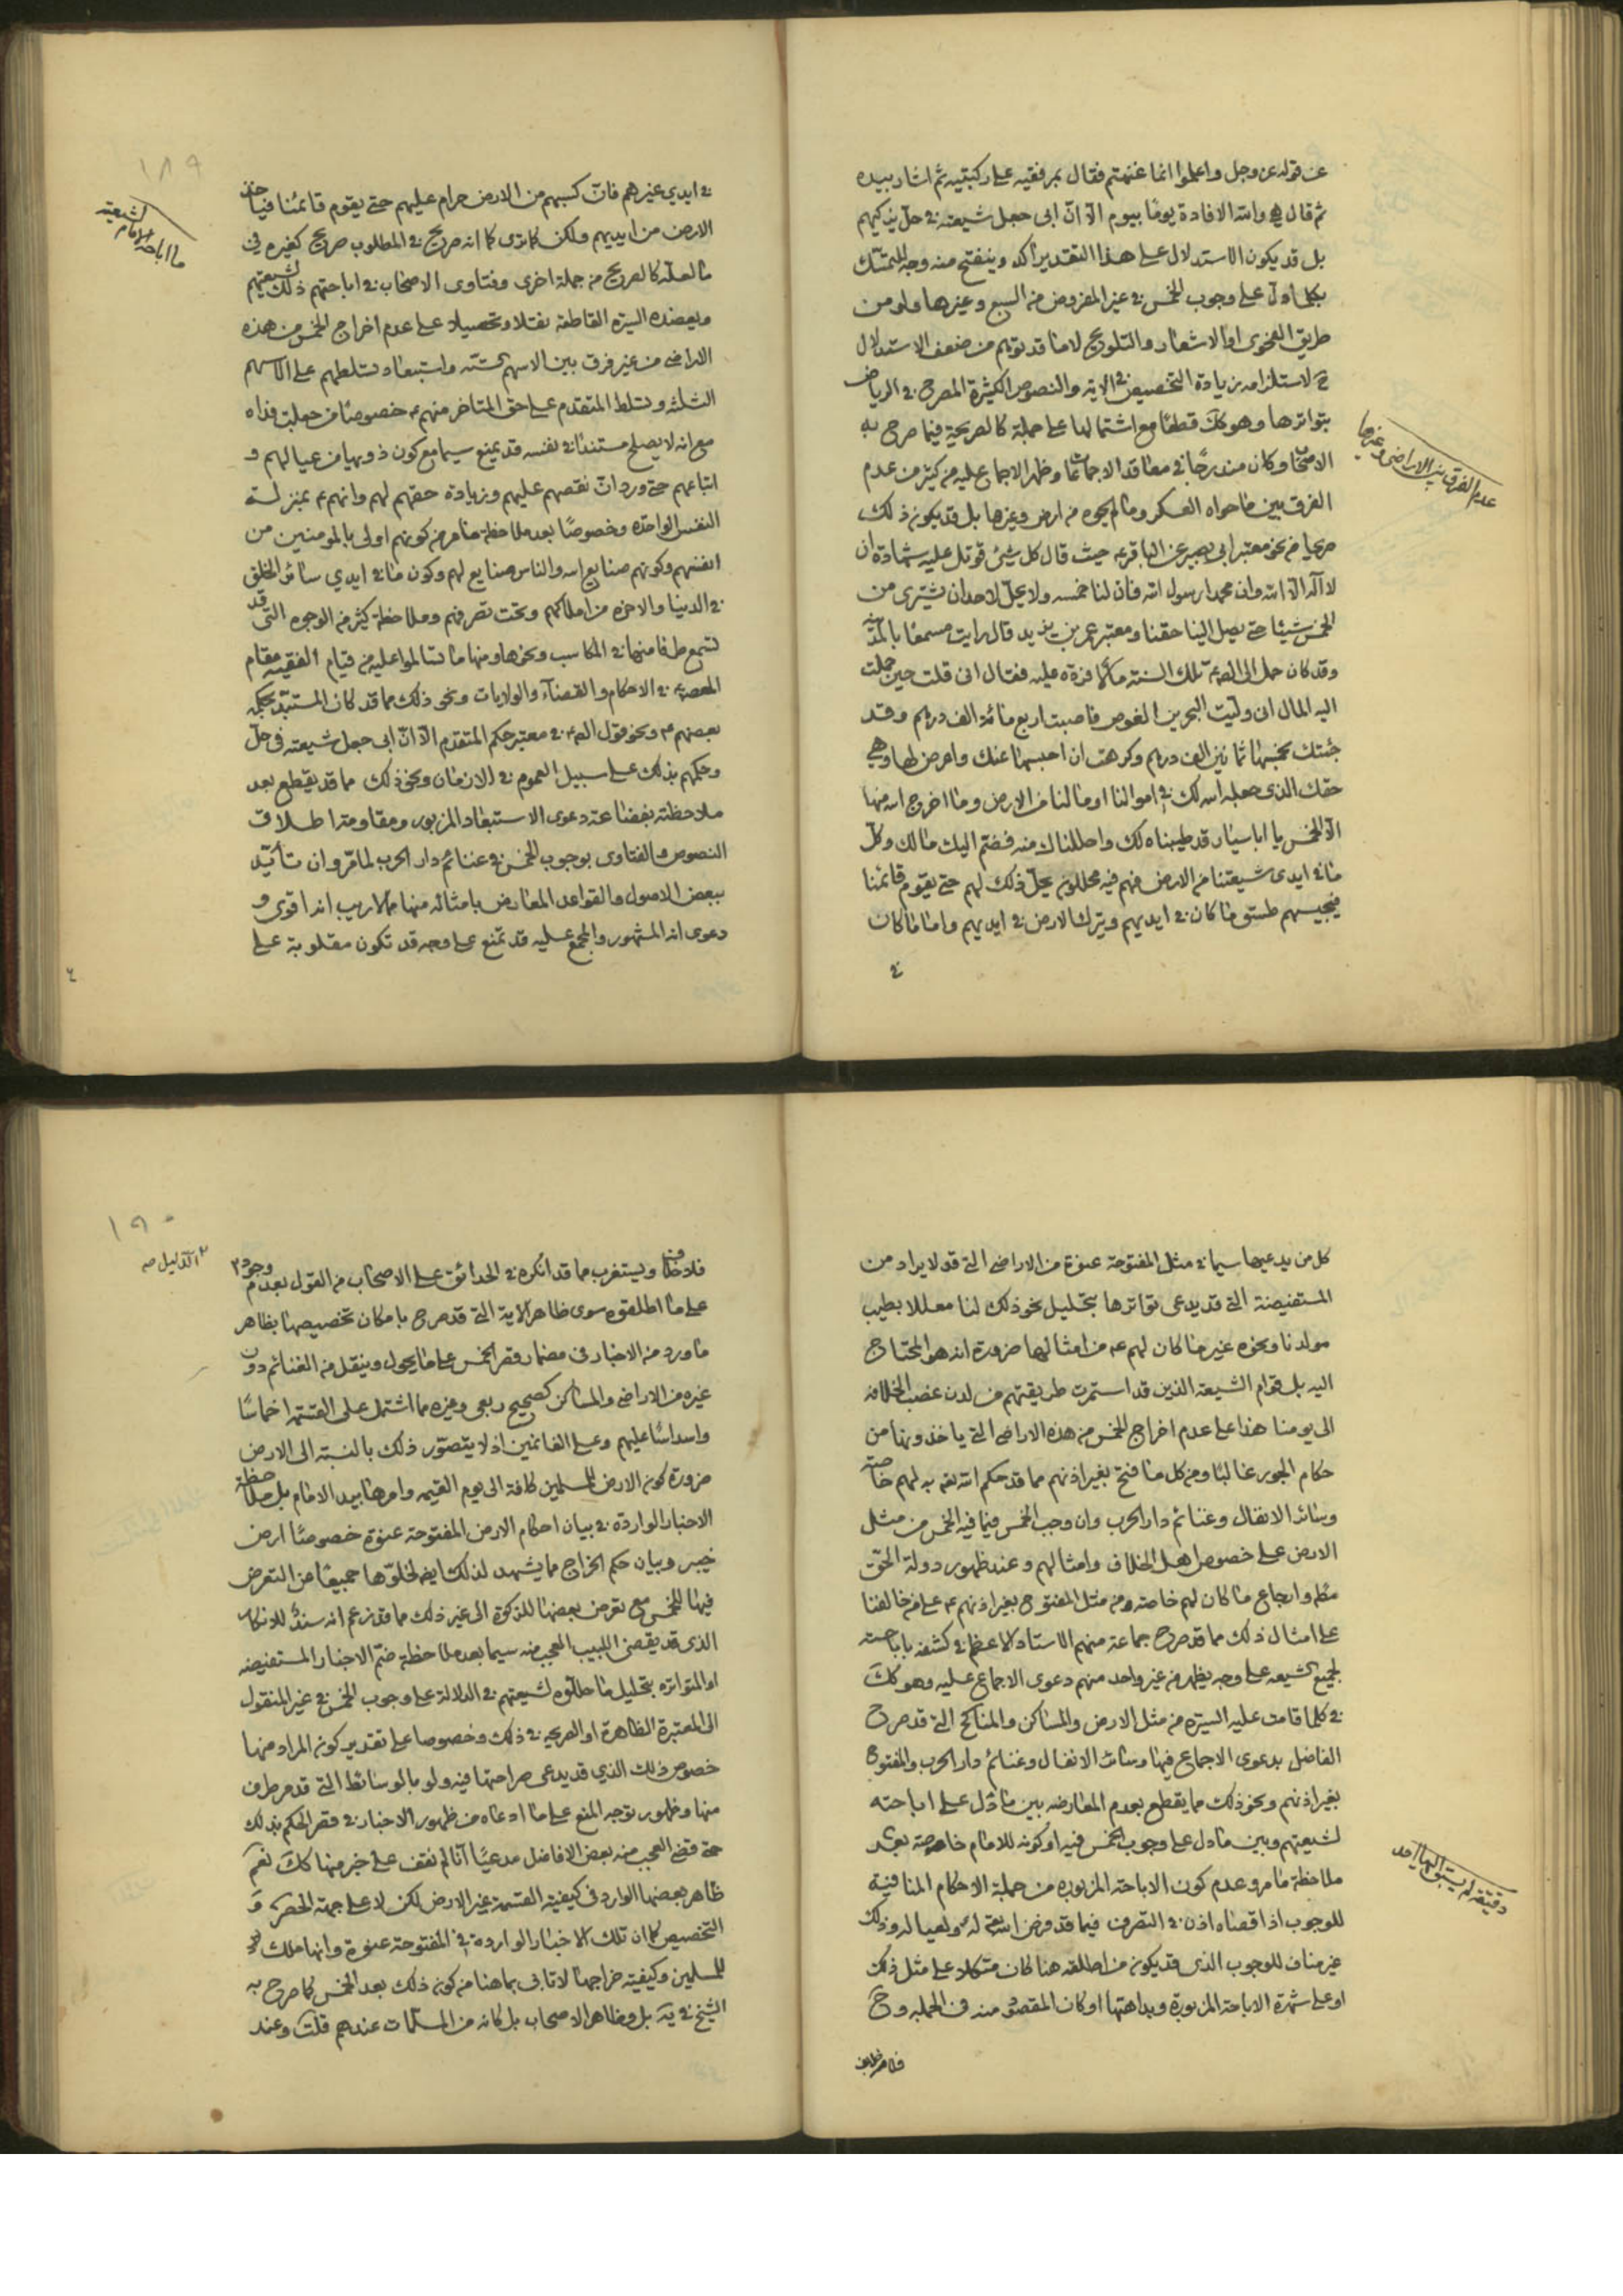 عن قوله عز وجل واعلموا انما غنمتم فقال بمرفقيه على ركبتيه ثم اشار بيده
ثم قال هي والله الافادة يومًا بيوم الا انّ ابي جعل شيعته في حلّ ليزكيهم
بل قد يكون الاستدلال على هذا التقدير آكد وينفتح منه وجه للتمسّك
بكل ما دلّ على وجوب الخمس في غير المفروض من السبع وغيرها ولو من
طريق الفحوى او الاشعار والتلويح لا ما قد يتوهم من ضعف الاستدلال
ح لاستلزامه زيادة التخصيص في الاية والنصوص الكثيرة المصرح في الرياض
بتواترها وهو كك قطعًا مع اشتمالها على جملة كالصريحة فيما صرح به
الاصحاب وكان مندرجًا في معاقد الاجماعات وظهر الاجماع عليه من كثير من عدم
الفرق بين ما حواه العسكر وما لم يحوه من ارض وغيرها بل قد يكون ذلك
صريحا من نحو معتبر ابي بصير عن الباقر ع حيث قال كل شيئ قوتل عليه شهادة ان
لا اله الا الله وان محمدا رسول الله فان لنا خمسه ولا يحلّ لاحد ان يشترى من
الخمس شيئا حتى يصل الينا حقنا ومعتبر عمر بن يزيد قال رايت مسمعًا بالمدينه
وقد كان حمل الى الص ع تلك السنة مالًا فردّه عليه فقال انى قلت حين حملت
اليه المال انى وليت البحرين الغوص فاصبت اربعمائة الف درهم وقد
جئتك بخمسها ثمانين الف درهم وكرهت ان احبسها عنك واعرض لها وهي
حقك الذى جعله الله لك في اموالنا او ما لنا من الارض وما اخرج الله منها
الا الخمس يا ابا سيار قد طيبناه لك واحللناك منه فضمّ اليك مالك وكلّ
ما في ايدى شيعتنا من الارض فهم فيه محللون يحلّ ذلك لهم حتى يقوم قائمنا
فيجبيهم طسق ما كان في ايديهم ويترك الارض في ايديهم واما ما كان
في
عدم الفرق بين الاراضى وغيرها
١٨٩
في ايدي غيرهم فانّ كسبهم من الارض حرام عليهم حتى يقوم قائمنا فياخذ
الارض من ايديهم ولكن كما ترى كما انه صريح في المطلوب صريح كغيره في
ما لعله كالصريح من جملة اخرى وفتاوى الاصحاب في اباحتهم ذلك لشيعتهم
ويعضده السيرة القاطعة نقلا وتحصيلا على عدم اخراج الخمس من هذه
الاراضى من غير فرق بين الاسهم الستّه واستبعاد تسلطهم على الاسهم
الثلثة وتسلط المتقدم على حق المتاخر منهم ع خصوصًا من جعلت فداه
مع انه لا يصلح مستندًا في نفسه قد يمنع سيما مع كون ذويها من عيالهم و
اتباعهم حتى ورد انّ نقصهم عليهم وزيادة حقهم لهم وانهم ع بمنزلة
النفس الواحده وخصوصًا بعد ملاحظة ما مر من كونهم اولى بالمومنين من
انفسهم وكونهم صنايع الله والناس صنايع لهم وكون ما في ايدي سائر الخلق
في الدنيا والاخره من املاكهم وتحت تصرفهم وملاحظة كثير من الوجوه التى قد
تسمع طرفا منها في المكاسب ونحوها ومنها ما تسالموا عليه من قيام الفقيه مقام
المعصوم في الاحكام والقضآء والولايات ونحو ذلك مما قد كان المستبدّ بحكمه
بعضهم ع ونحو قول الص ع في معتبر حكم المتقدم الا انّ ابى جعل شيعته فى حلّ
وحكمهم بذلك على سبيل العموم في الازمان ونحو ذلك مما قد يقطع بعد
ملاحظته بفضاعة دعوى الاستبعاد المزبور ومقاومته اطلاق
النصوص والفتاوى بوجوب الخمس في غنائم دار الحرب لما مرّ وان تأيّد
ببعض الاصول والقواعد المعارض بامثاله منها مما لا ريب انه اقوى و
دعوى انه المشهور والمجمع عليه قد تمنع على وجه قد تكون مقلوبة على
ما اباحه الامام لشيعته
كل من يدعيها سيما في مثل المفتوحة عنوة من الاراضى التى قد لا يراد من
المستفيضة التى قد يدعى تواترها بتحليل نحو ذلك لنا معللا بطيب
مولدنا ونحوه غير ما كان لهم ع من امثالها ضرورة انه هو المحتاج
اليه بل قوام الشيعة الذين قد استمرت طريقتهم من لدن غصب الخلافه
الى يومنا هذا على عدم اخراج الخمس من هذه الاراضى التى ياخذونها من
حكام الجور غالبًا ومن كل ما فتح بغير اذنهم مما قد حكم الله تع به لهم خاصّة
وسائر الانفال وغنائم دار الحرب وان وجب الخمس فيما فيه الخمس من مثل
الارض على خصوص اهل الخلاف وامثالهم وعند ظهور دولة الحقّ
مط وارجاع ما كان لهم خاصة ومن مثل المفتوح بغير اذنهم ع على من خالفنا
على امثال ذلك مما قد صرح جماعة منهم الاستاد الاعظم في كشفه باباحته
لجميع الشيعه على وجه يظهر من غير واحد منهم دعوى الاجماع عليه وهو كك
في كلما قامت عليه السيره من مثل الارض والمساكن والمناكح التى قد صرح
الفاضل بدعوى الاجماع فيها وسائر الانفال وغنائم دار الحرب والمفتوح
بغير اذنهم ونحو ذلك مما يقطع بعدم المعارضه بين ما دلّ على اباحته
لشيعتهم وبين ما دل على وجوب الخمس فيه او كونه للامام خاصة بعد
ملاحظة ما مر وعدم كون الاباحة المزبوره من جملة الاحكام المنافية
للوجوب اذ اقصاه اذن في التصرف فيما قد فرض الله تع له ولعياله وذلك
غير مناف للوجوب الذى قد يكون من اطلقه هنا كان متكلا على مثل ذلك
او على شهرة الاباحة المزبورة وبداهتها او كان المقصود منه فى الجمله وح
دقيقة لم يسبق اليها احد
١٩٠
فلا خلاف ويستغرب مما قد انكره في الحدائق على الاصحاب من القول بعدم وجود
على ما اطلقوه سوى ظاهر الاية التى قد صرح بامكان تخصيصها بظاهر
ما ورد من الاخبار فى مضمار قصر الخمس على ما يحول وينقل من الغنائم دون
غيره من الاراضى والمساكن كصحيح ربعى وغيره مما اشتمل على القسمة اخماسًا
واسداسًا عليهم وعلى الغانمين اذ لا يتصوّر ذلك بالنسبة الى الارض
ضرورة كون الارض للمسلمين كافة الى يوم القيمه وامرها بيد الامام بل ملاحظة
الاخبار الواردة في بيان احكام الارض المفتوحة عنوة خصوصًا ارض
خيبر وبيان حكم الخراج مما يشهد لذلك ايض لخلوّها جميعًا من التعرض
فيها للخمس مع تعرض بعضها للزكوة الى غير ذلك مما قد زعم انه سندٌ للانكار
الذى قد يقضى اللبيب العجب منه سيما بعد ملاحظة ضمّ الاخبار المستفيضه
او المتواتره بتحليل ما حللّوه لشيعتهم في الدلالة على وجوب الخمس في غير المنقول
الى المعتبرة الظاهرة او الصريحه في ذلك وخصوصا على تقدير كون المراد منها
خصوص ذلك الذي قد يدعى صراحتها فيه ولو بالوسائط التى قد مر طرف
منها وظهور توجه المنع على ما ادعاه من ظهور الاخبار في قصر الحكم بذلك
حتى قضى العجب منه بعض الافاضل مدعيًا انّا لم نقف على خبر منها كك نعم
ظاهر بعضها الوارد فى كيفية القسمة غير الارض لكن لا على جهة الحصر و
التخصيص كما ان تلك الاخبار الواردة في المفتوحة عنوة وانها ملك
للمسلمين وكيفية خراجها لا تابى بما هنا من كون ذلك بعد الخمس كما صرح به
الشيخ في يه بل وظاهر الاصحاب بل كانه من المسلّمات عندهم قلت وعند